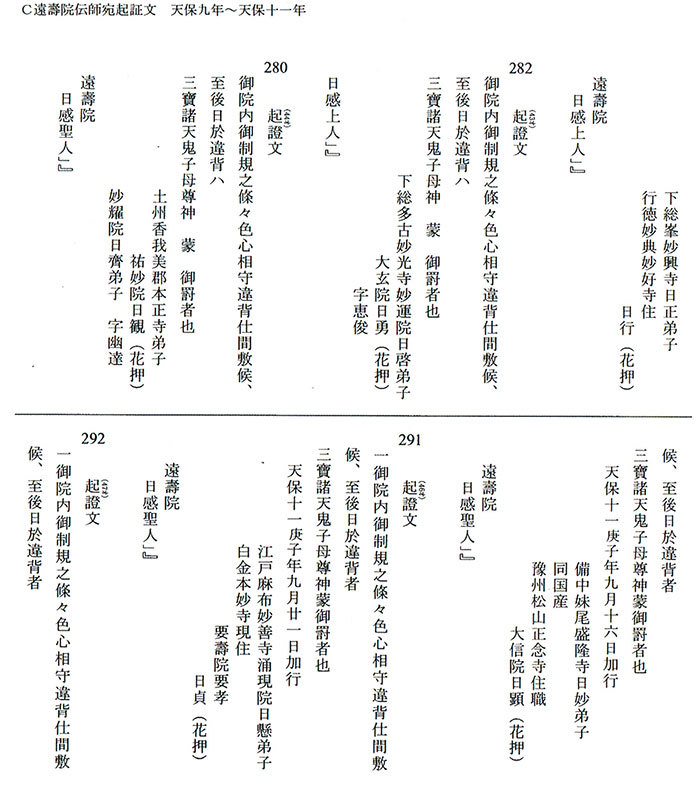 C遠壽院伝師宛起証文　天保九年～天保十一年
下総峯妙興寺日正弟子
行徳妙典妙好寺住
日行（花押）
遠壽院
日感上人」』
282
起證文
御院内御制規之條々色心相守違背仕間敷候、
至後日於違背ハ
三寶諸天鬼子母神　蒙　御罸者也
下総多古妙光寺妙運院日啓弟子
大玄院日勇（花押）
字恵俊
日感上人」』
280
起證文
御院内御制規之條々色心相守違背仕間敷候、
至後日於違背ハ
三寶諸天鬼子母尊神　蒙　御罸者也
土州香我美郡本正寺弟子
祐妙院日観（花押）
妙耀院日齊弟子　字幽達
遠壽院
日感聖人」』
候、至後日於違背者
三寶諸天鬼子母尊神蒙御罸者也
天保十一庚子年九月十六日加行
備中妹尾盛隆寺日妙弟子
同国産
豫州松山正念寺住職
大信院日顕（花押）
遠壽院
日感聖人」』
291
起證文
一御院内御制規之條々色心相守違背仕間敷
候、至後日於違背者
三寶諸天鬼子母尊神蒙御罸者也
天保十一庚子年九月廿一日加行
江戸麻布妙善寺涌現院日懸弟子
白金本妙寺現住
要壽院要孝
日貞（花押）
遠壽院
日感聖人」』
292
起證文
一御院内御制規之條々色心相守違背仕間敷
候、至後日於違背者